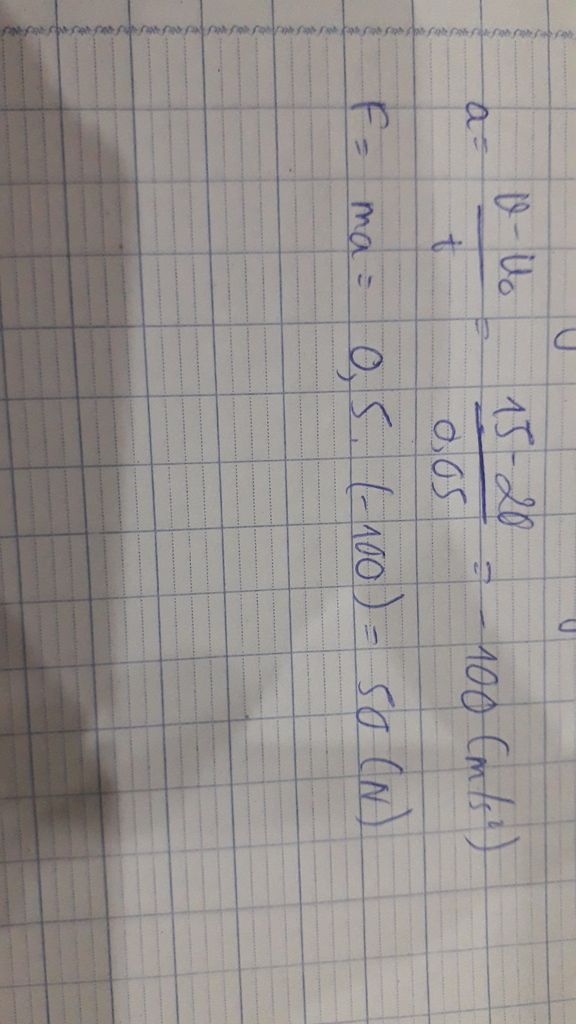 a = \frac{v - v_0}{t} = \frac{15 - 20}{0,05} = -100 (m/s²)
F = ma = 0,5 . (-100) = 50 (N)